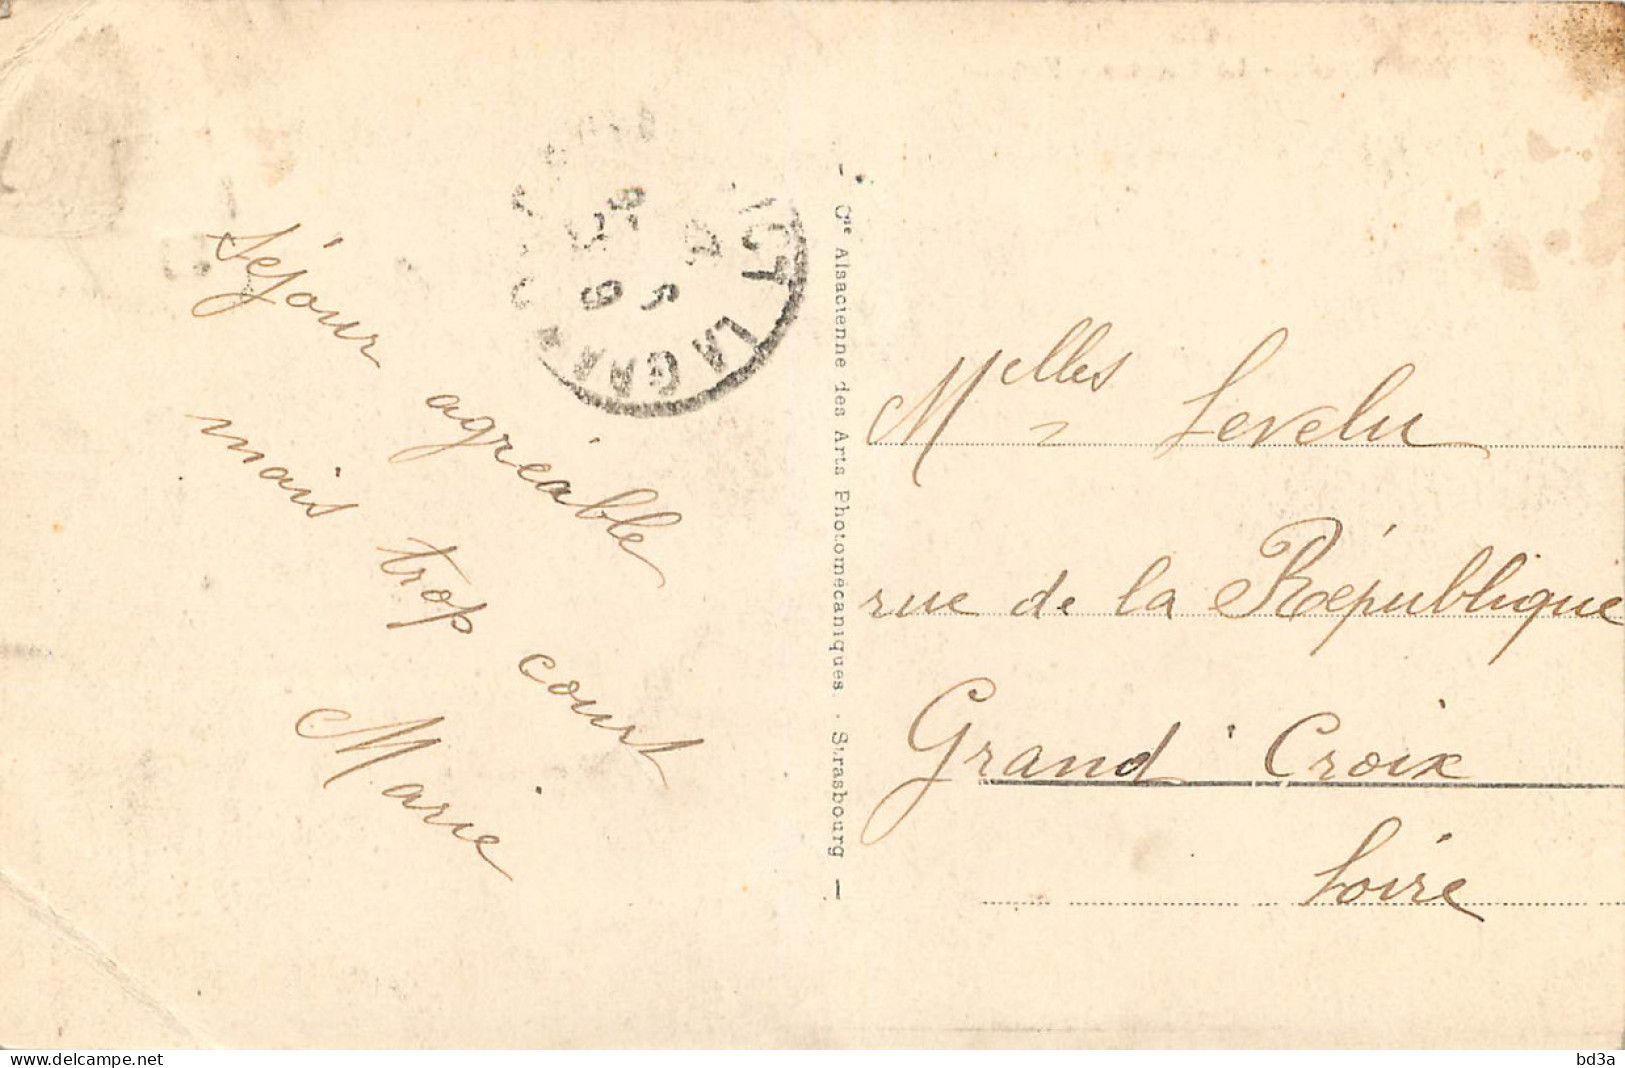 Séjour agréable
mais trop court
Marie
LA GRAN
— Cie Alsacienne des Arts Photomécaniques - Strasbourg —
Melles Levelu
rue de la République
Grand' Croix
Loire
delcampe.net
bd3a